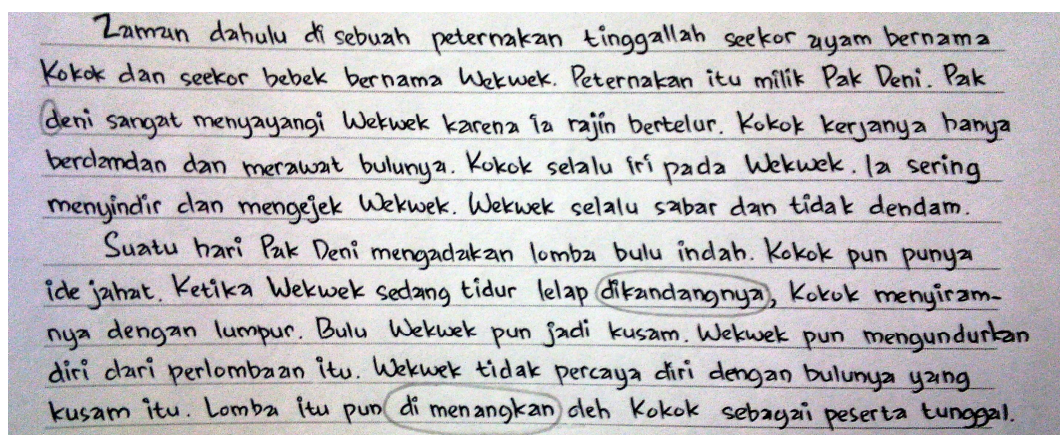 Zaman dahulu di sebuah peternakan tinggallah seekor ayam bernama
Kokok dan seekor bebek bernama Wekwek. Peternakan itu milik Pak Deni. Pak
deni sangat menyayangi Wekwek karena ia rajin bertelur. Kokok kerjanya hanya
berdamdan dan merawat bulunya. Kokok selalu iri pada Wekwek. Ia sering
menyindir dan mengejek Wekwek. Wekwek selalu sabar dan tidak dendam.
Suatu hari Pak Deni mengadakan lomba bulu indah. Kokok pun punya
ide jahat. Ketika Wekwek sedang tidur lelap dikandangnya, Kokok menyiram-
nya dengan lumpur. Bulu Wekwek pun jadi kusam. Wekwek pun mengundurkan
diri dari perlombaan itu. Wekwek tidak percaya diri dengan bulunya yang
kusam itu. Lomba itu pun di menangkan oleh Kokok sebagai peserta tunggal.